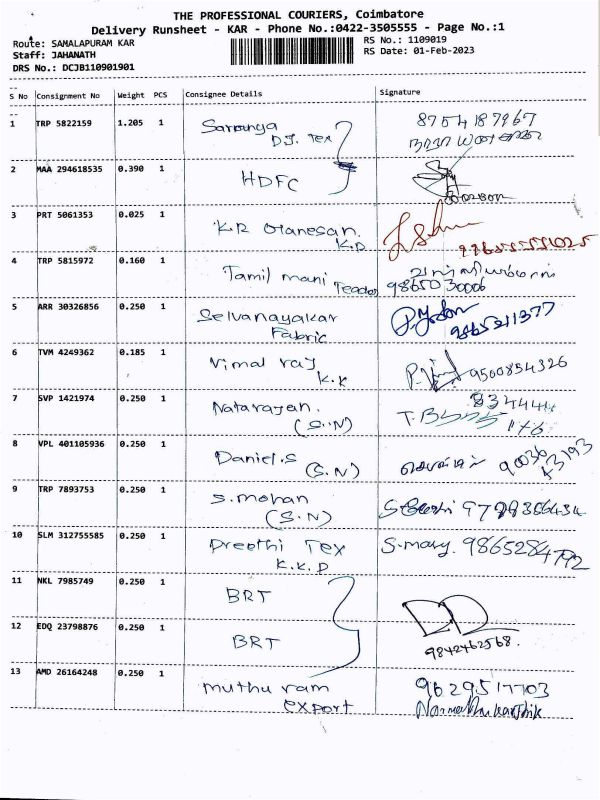 THE PROFESSIONAL COURIERS, Coimbatore
Delivery Runsheet - KAR - Phone No.:0422-3505555 - Page No.:1
Route: SAMALAPURAM KAR
RS No.: 1109019
Staff: JAHANATH
RS Date: 01-Feb-2023
DRS No.: DCJB110901901
S No Consignment No Weight PCS Consignee Details Signature
1 TRP 5822159 1.205 1 Saranya 8754187967
D.J. Tex
2 MAA 294618535 0.390 1 HDFC
3 PRT 5061353 0.025 1 K.R
K.D
4 TRP 5815972 0.160 1 Tamil mani
Teador 9865030006
5 ARR 30326856 0.250 1 Selvanayakar
Fabric 9865211377
6 TVM 4249362 0.185 1 Vimal raj 9500854326
K.K
7 SVP 1421974 0.250 1 Natarajan.
(S.N)
8 VPL 401105936 0.250 1 Daniel.S
(S.N)
9 TRP 7893753 0.250 1 S.mohan
(S.N)
10 SLM 312755585 0.250 1 Preethi Tex S.mary. 9865284792
K.K.D
11 NKL 7985749 0.250 1 BRT
12 EDQ 23798876 0.250 1 BRT 9842462568.
13 AMD 26164248 0.250 1 muthu ram 9629517703
export